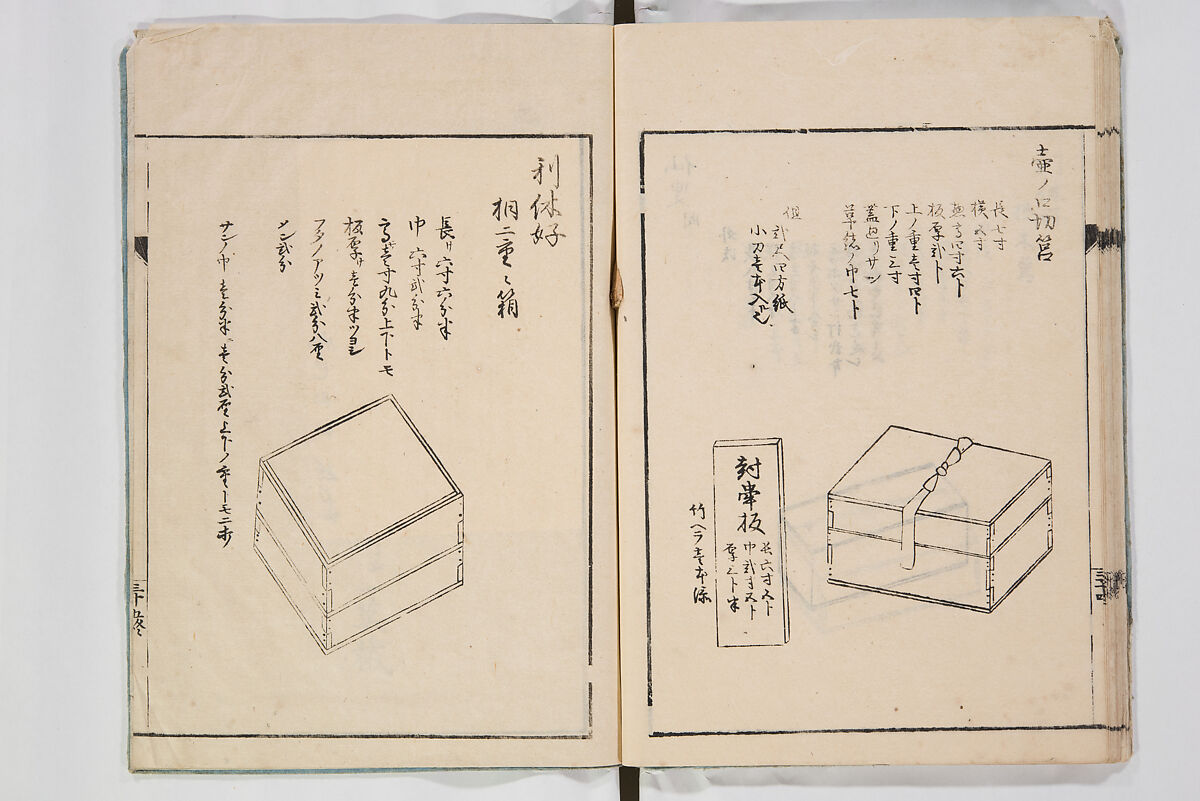 壺ノ口切筥
長七寸
横五寸
惣高四寸六ト
板厚弐ト
上ノ重壱寸四ト
下ノ重三寸
蓋廻リサン
草結ノ巾七ト
但
弐尺四方紙
小刀壱本入ル也
封串板
長六寸五ト
巾弐寸五ト
厚ミト半
竹ヘラ壱本添
三十四
利休好
桐二重之箱
長サ六寸六分半
巾六寸弐分半
高壱寸九分上下トモ
板厚サ壱分半ツヨシ
フタノアツミ弐分八厘
メン弐分
サンノ巾壱分半壱分弐厘上下ノ重トモニ
三十五終